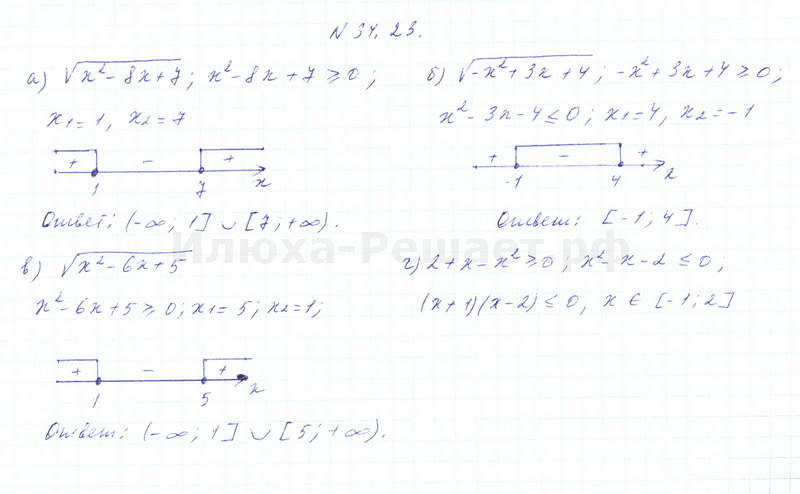 N 34.23.
а) √x²-8x+7; x²-8x+7≥0;
x₁=1, x₂=7
+ - +
1 7 x
Ответ: (-∞; 1] ∪ [7; +∞).
б) √-x²+3x+4; -x²+3x+4≥0;
x²-3x-4≤0; x₁=4, x₂=-1
+ - +
-1 4 x
Ответ: [-1; 4].
Илюха-Решает.рф
в) √x²-6x+5
x²-6x+5≥0; x₁=5; x₂=1;
+ - +
1 5 x
Ответ: (-∞; 1] ∪ [5; +∞).
г) 2+x-x²≥0; x²-x-2≤0;
(x+1)(x-2)≤0, x ∈ [-1; 2]